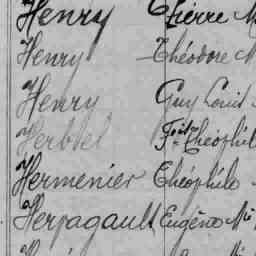 Henry Pierre M
Henry Théodore M
Henry Guy Louis
Herbbel Théophil
Hermenier Théophile
Herpagault Eugène M